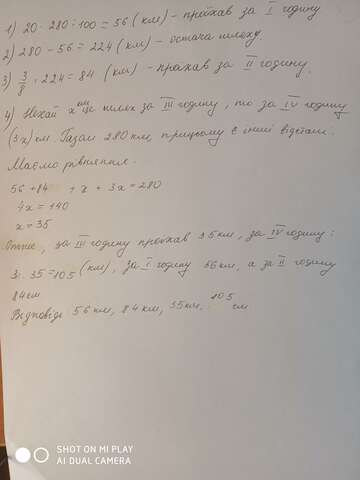 1) 20 · 280 : 100 = 56 (км) - проїхав за I годину
2) 280 - 56 = 224 (км) - остача шляху.
3) 3/8 · 224 = 84 (км) - проїхав за II годину.
4) Нехай x км це шлях за III годину, то за IV годину
(3x) км. Разом 280 км, причому є інші відстані.
Маємо рівняння.
56 + 84 + x + 3x = 280
4x = 140
x = 35
Отже, за III годину проїхав 35 км, за IV годину:
3 · 35 = 105 (км), за I годину 56 км, а за II годину
84 км
Відповідь 56 км, 84 км, 35км, 105 км
SHOT ON MI PLAY
AI DUAL CAMERA